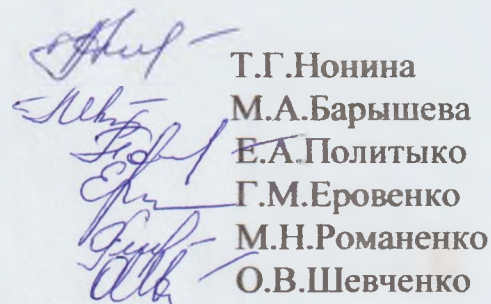 Т.Г.Нонина
М.А.Барышева
Е.А.Политыко
Г.М.Еровенко
М.Н.Романенко
О.В.Шевченко